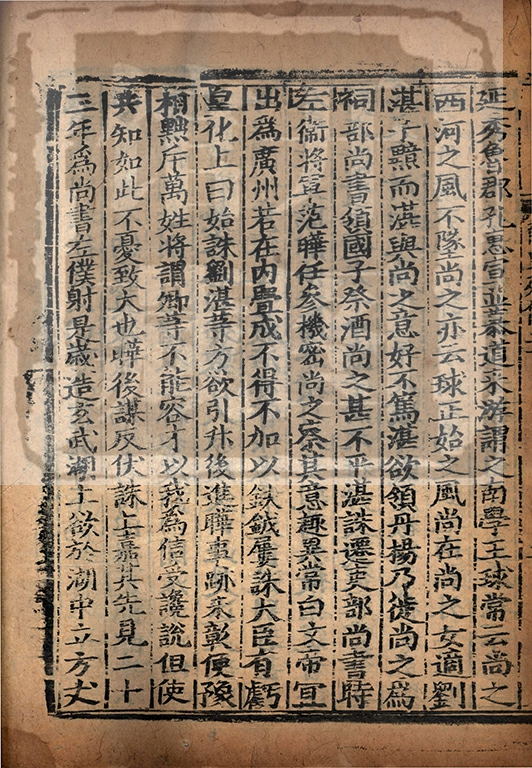 延秀魯郡孔惠宣並慕道來游謂之南學王球常云尚之
西河之風不墜尚之亦云球正始之風尚在尚之女適劉
湛子黯而湛與尚之意好不篤湛欲領丹楊乃徙尚之為
祠部尚書領國子祭酒尚之甚不平湛誅遷吏部尚書時
左衛將軍范曄任參機密尚之察其意趣異常白文帝宜
出為廣州若在內釁成不得不加以鈇鉞屢誅大臣有虧
皇化上曰始誅劉湛等方欲引升後進曄事跡未彰便豫
相黜斥萬姓將謂卿等不能容才以我為信受讒說但使
共知如此不憂致大也曄後謀反伏誅上嘉其先見二十
三年為尚書左僕射是歲造玄武湖上欲於湖中立方丈